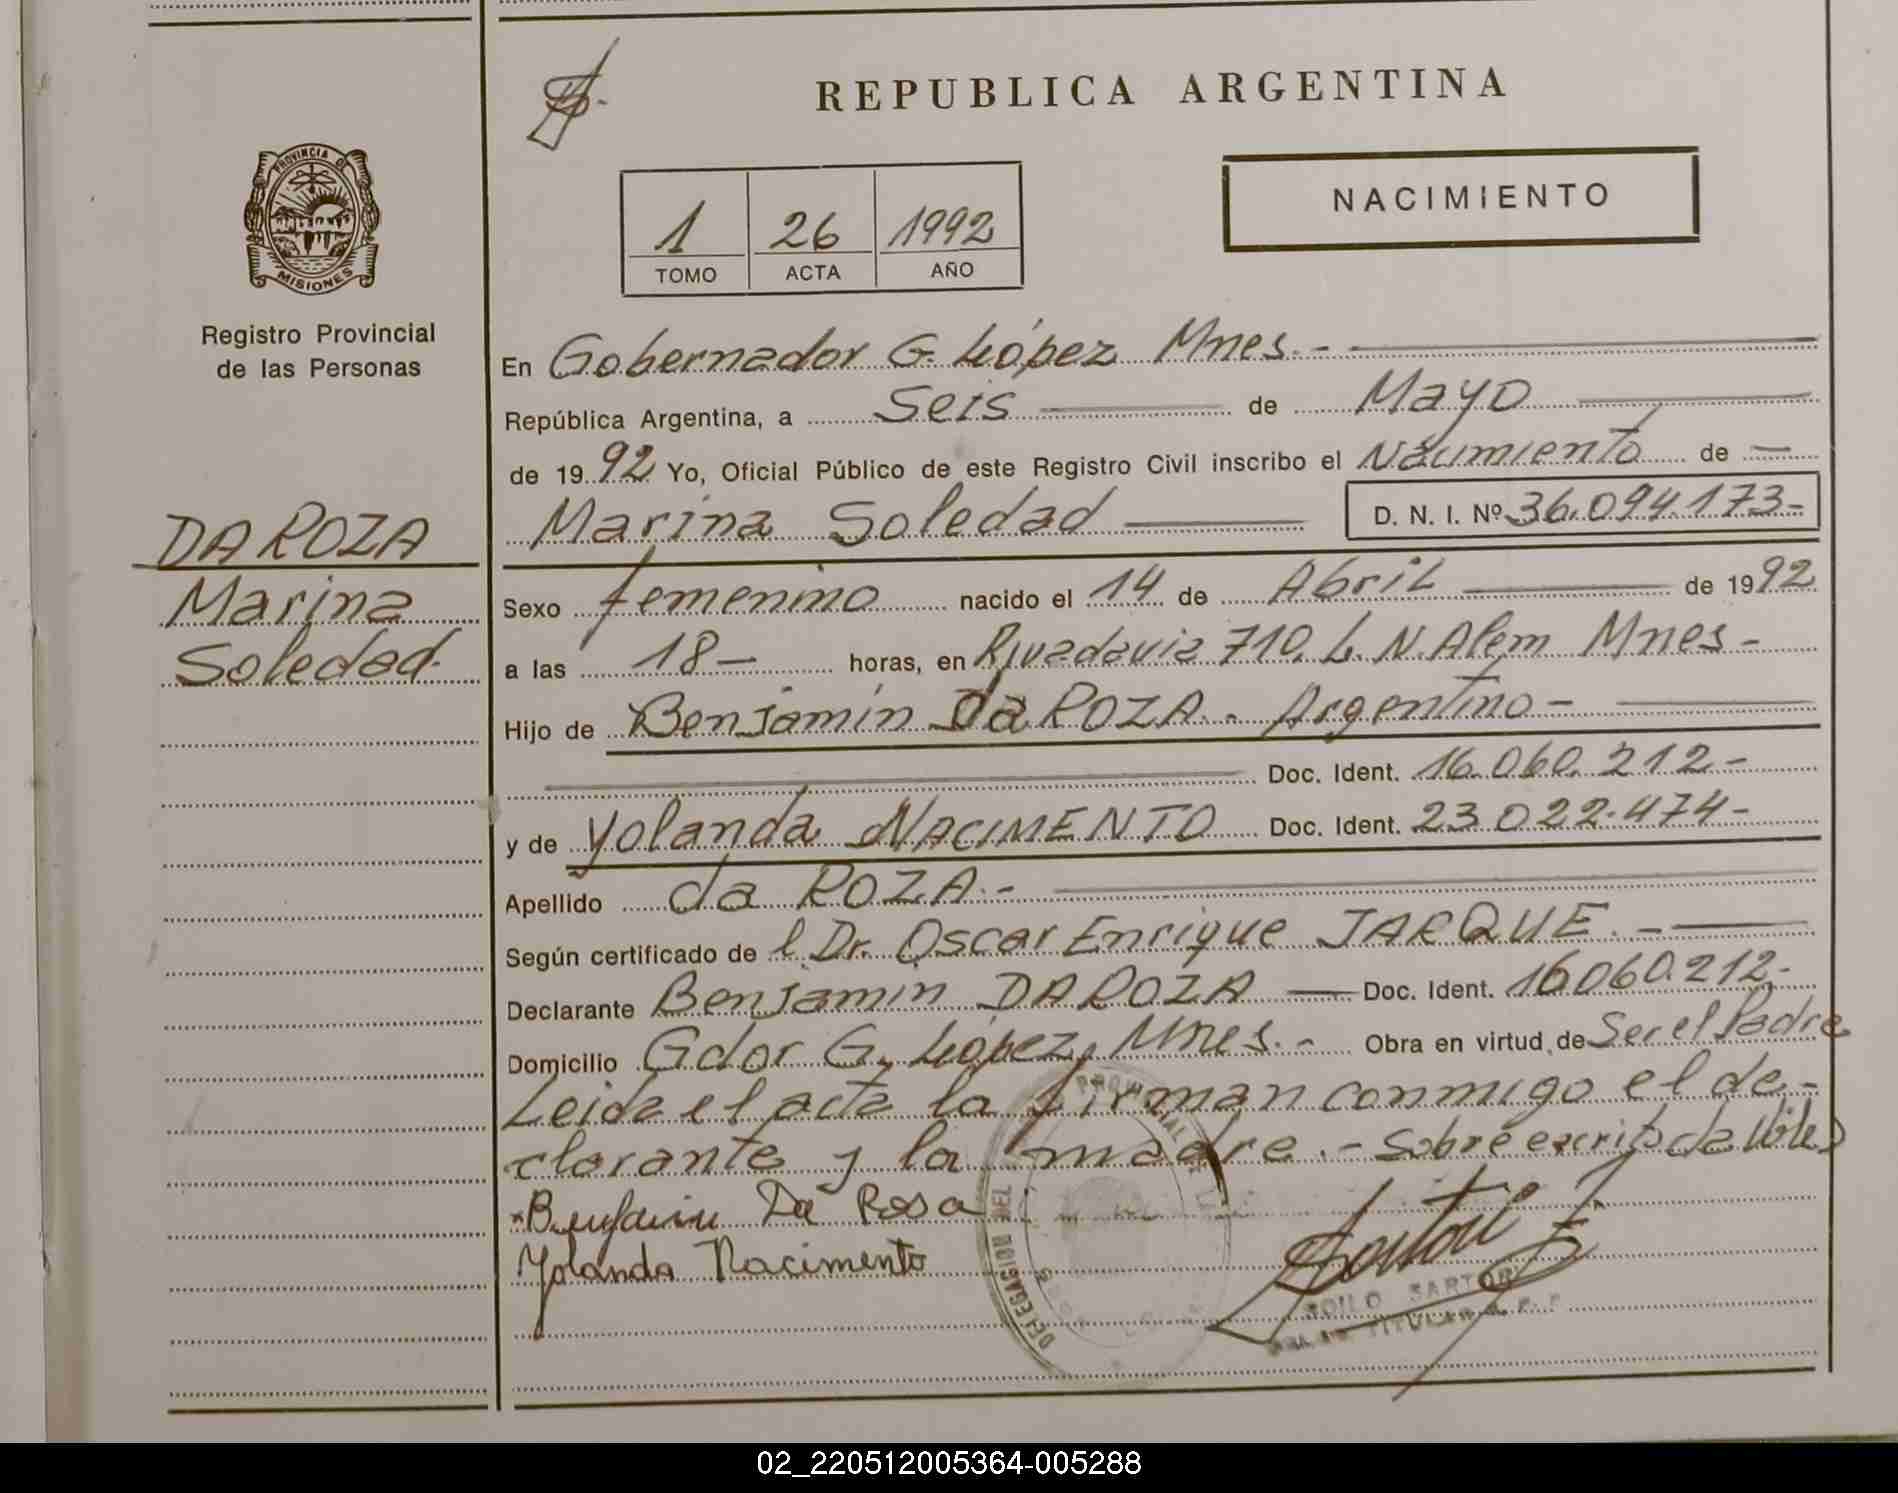 REPUBLICA ARGENTINA
NACIMIENTO
1 26 1992
TOMO ACTA AÑO
PROVINCIA DE
MISIONES
Registro Provincial
de las Personas
DA ROZA
Marina
Soledad.
En Gobernador G. López Mnes.-
República Argentina, a Seis de Mayo
de 1992 Yo, Oficial Público de este Registro Civil inscribo el Nacimiento de
Marina Soledad D. N. I. Nº 36.094.173-
Sexo femenino nacido el 14 de Abril de 1992
a las 18- horas, en Rivadavia 710. L. N. Alem Mnes-
Hijo de Benjamín Da ROZA.- Argentino-
Doc. Ident. 16.060.212-
y de Yolanda NACIMENTO Doc. Ident. 23.022.474-
Apellido da ROZA.-
Según certificado de l Dr. Oscar Enrique JARQUE.-
Declarante Benjamín DA ROZA Doc. Ident. 16.060.212.-
Domicilio Gdor G. López, Mnes.- Obra en virtud de Ser el Padre
Leida el acta la firman conmigo el de-
clarante y la madre.- Sobre escrito da
Benjamin Da Rosa
Yolanda Nacimento
DELEGACION DEL
PROVINCIAL
SOILO SARTORI
TITULAR
02_220512005364-005288